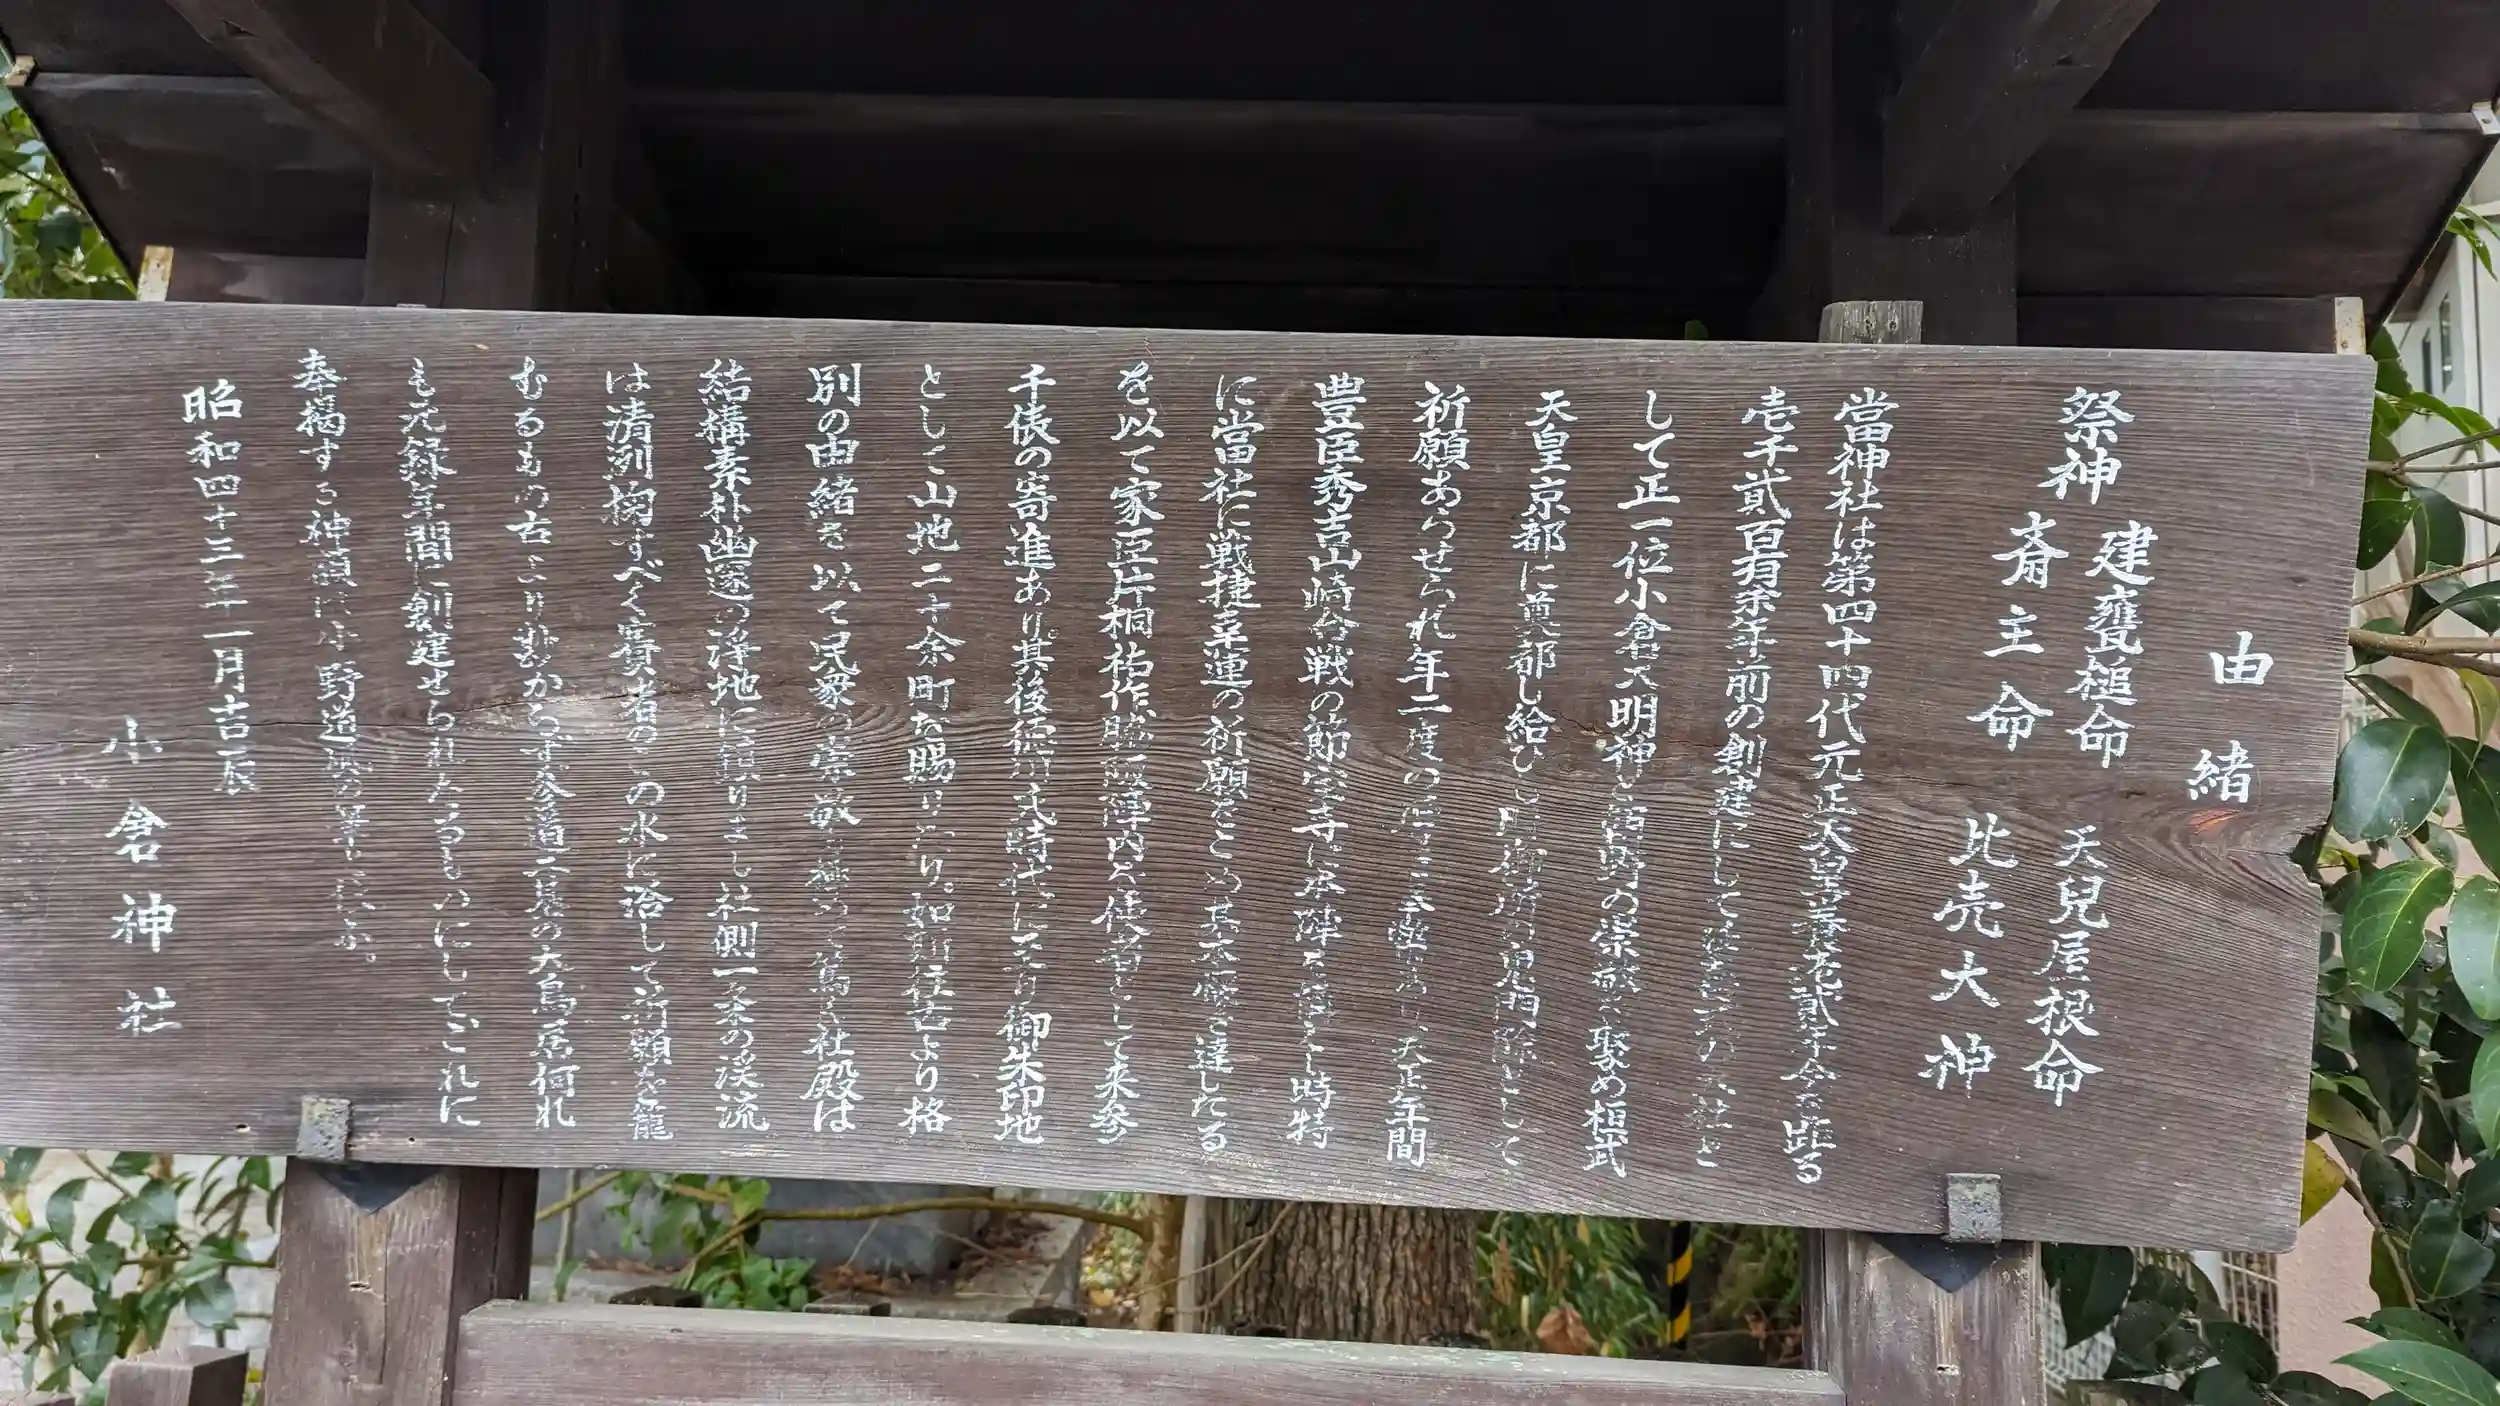 由緒
祭神 建甕槌命 天兒屋根命
斎主命 比売大神
當神社は第四十四代元正天皇養老貳年今を距る
壱千貳百有余年前の創建にして の大社と
して正一位小倉大明神と 崇敬を聚め桓武
天皇京都に奠都し給ひし時御所の鬼門除として
祈願あらせられ年二度の あり、天正年間
豊臣秀吉山崎合戦の節宝寺に本陣を 時特
に當社に戦捷幸運の祈願をこめ其本願を達したる
を以て家臣片桐祐作 陣内を使者として来参
千俵の寄進あり其後徳川氏時代に至り御朱印地
として山地二十余町を賜りたり。如斯往古より格
別の由緒を以て民衆の崇敬を極めて篤く社殿は
結構素朴幽邃の浄地に鎮りまし社側一条の渓流
は清洌掬すべく賽者のこの水に浴して祈願を籠
むるもの古より尠からず参道二基の大鳥居何れ
も元録年間に創建せられたるものにしてこれに
奉掲する神額は小野道風の筆と伝ふ。
昭和四十三年一月吉辰
小倉神社